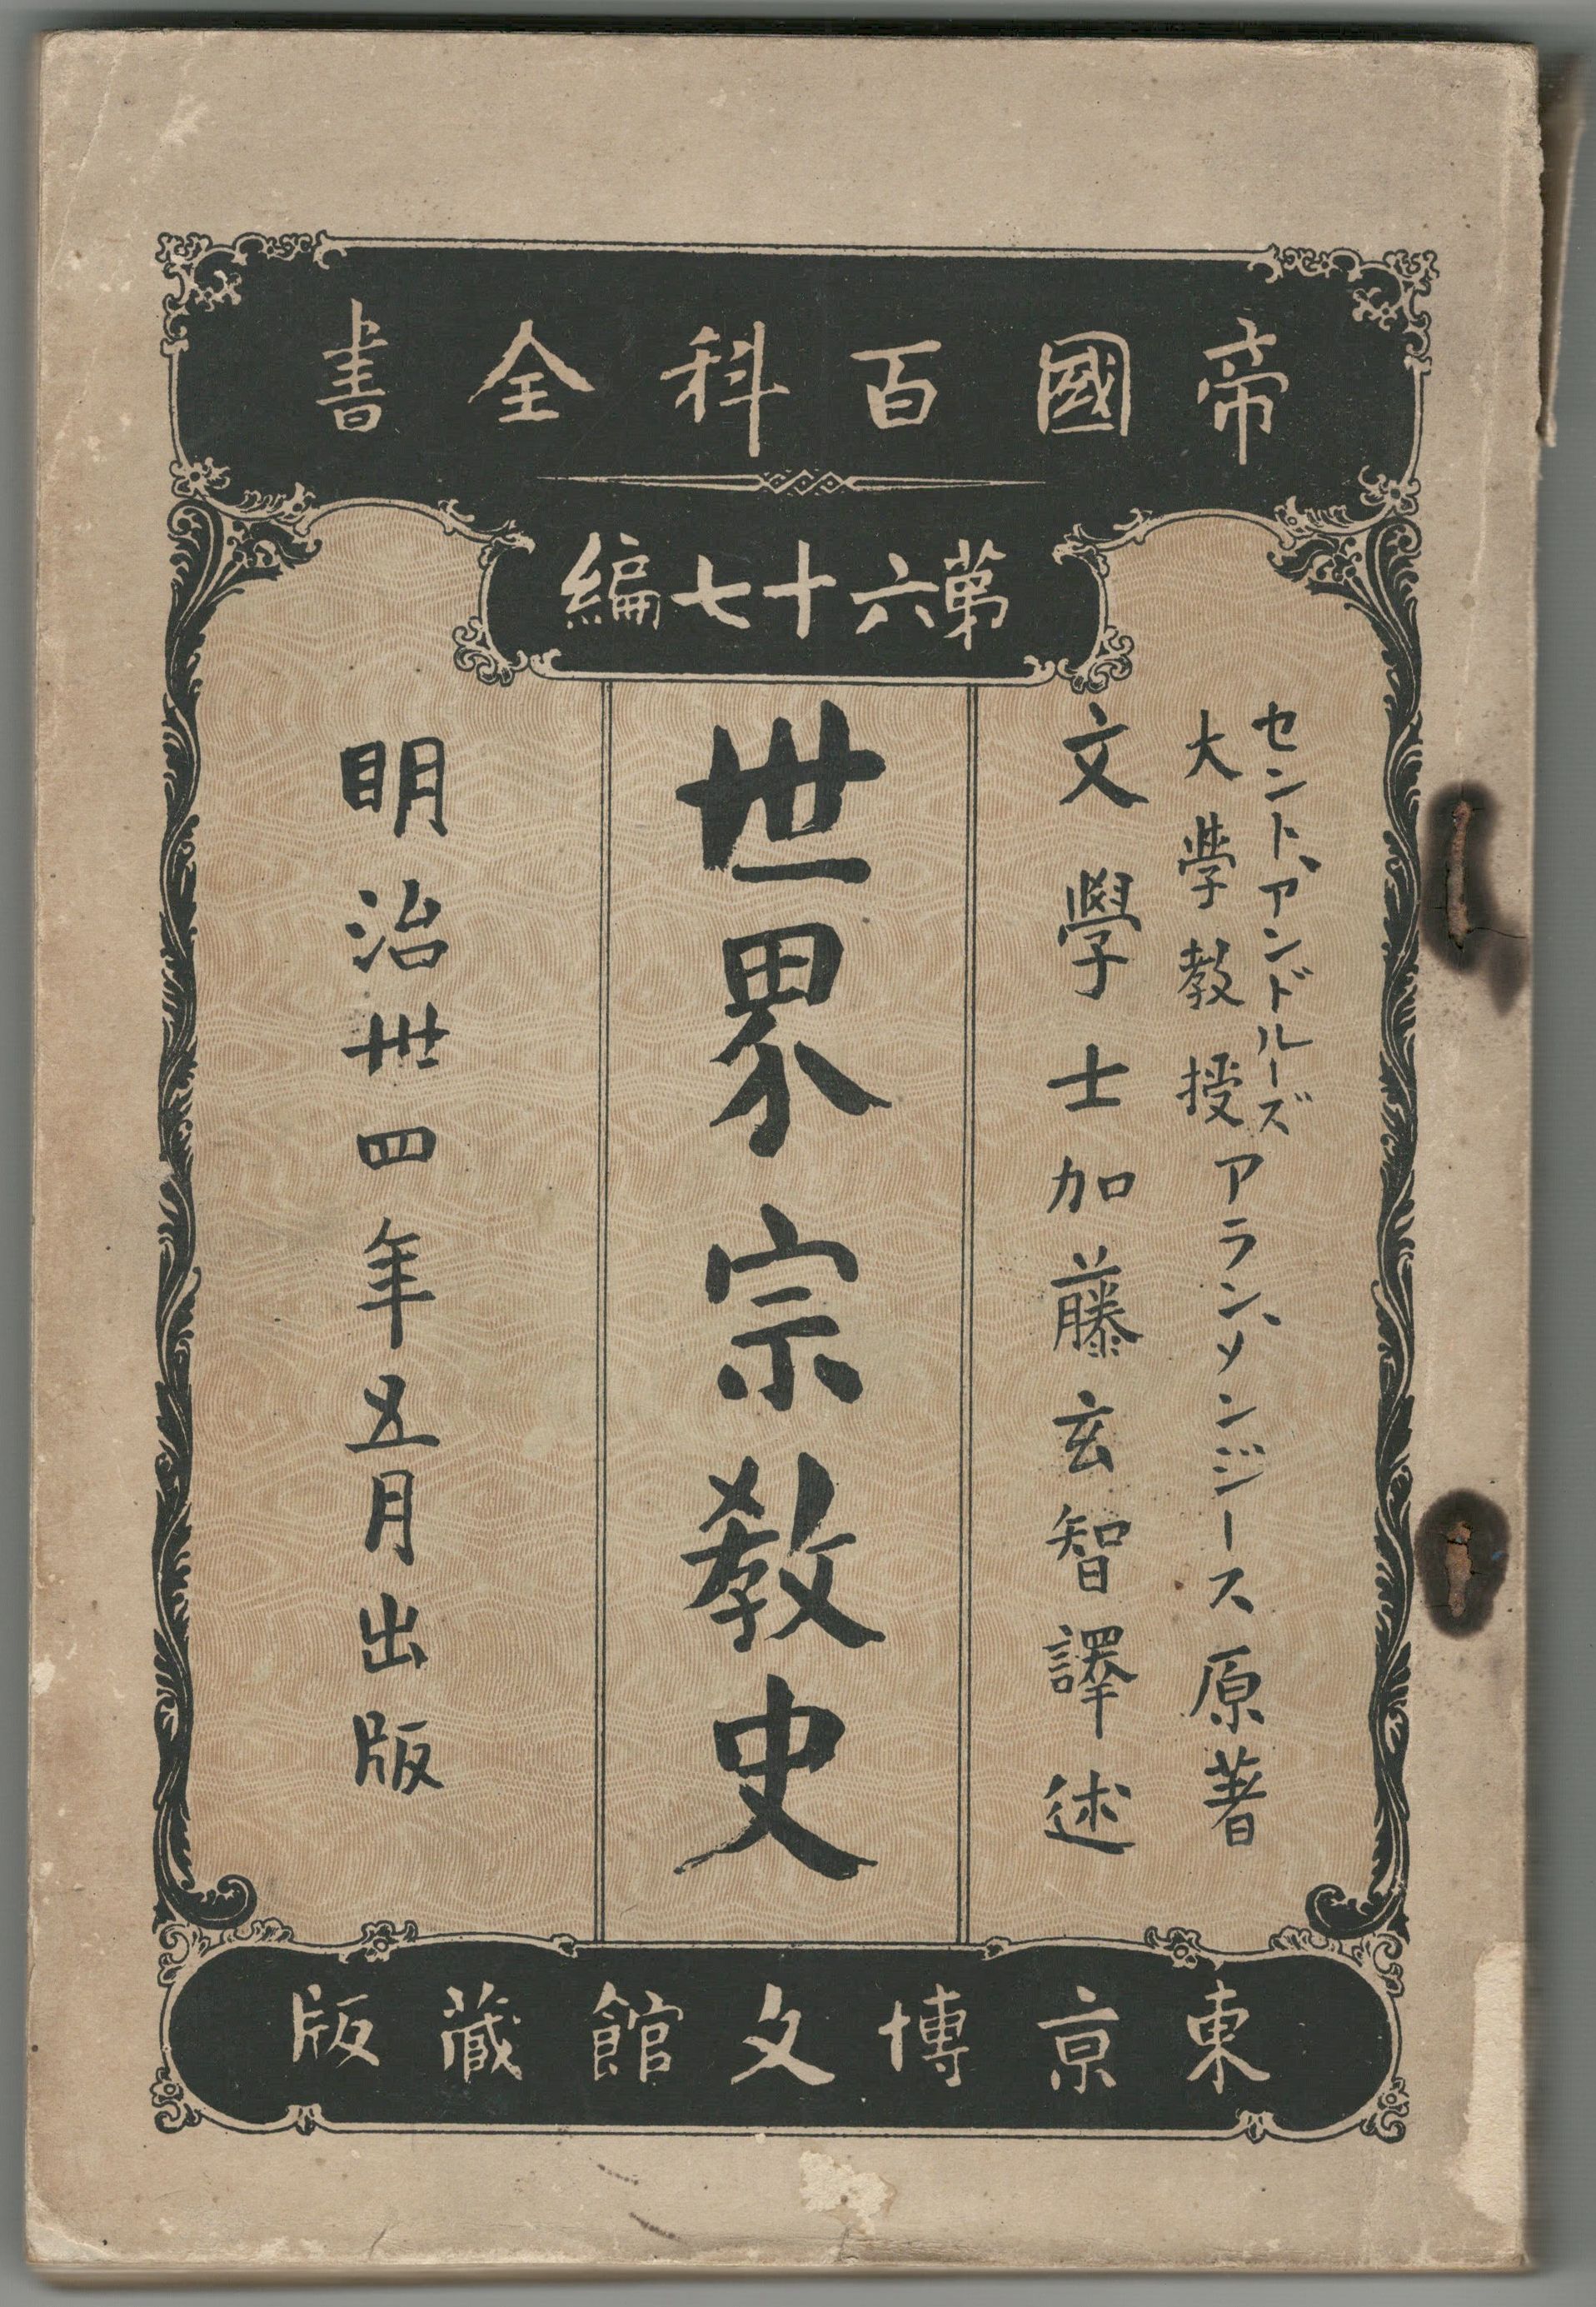 帝國百科全書
第六十七編
セント、アンドルーズ
大學教授
アラン、メンジース原著
文學士加藤玄智譯述
世界宗教史
明治卅四年五月出版
東京博文館藏版